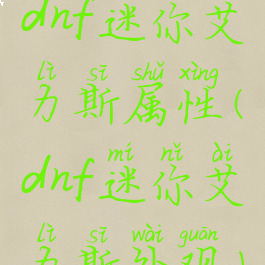 dnf迷你艾
lì sī shǔ xìng
力斯属性(
mí nǐ ài
dnf迷你艾
lì sī wài guān
力斯外观)